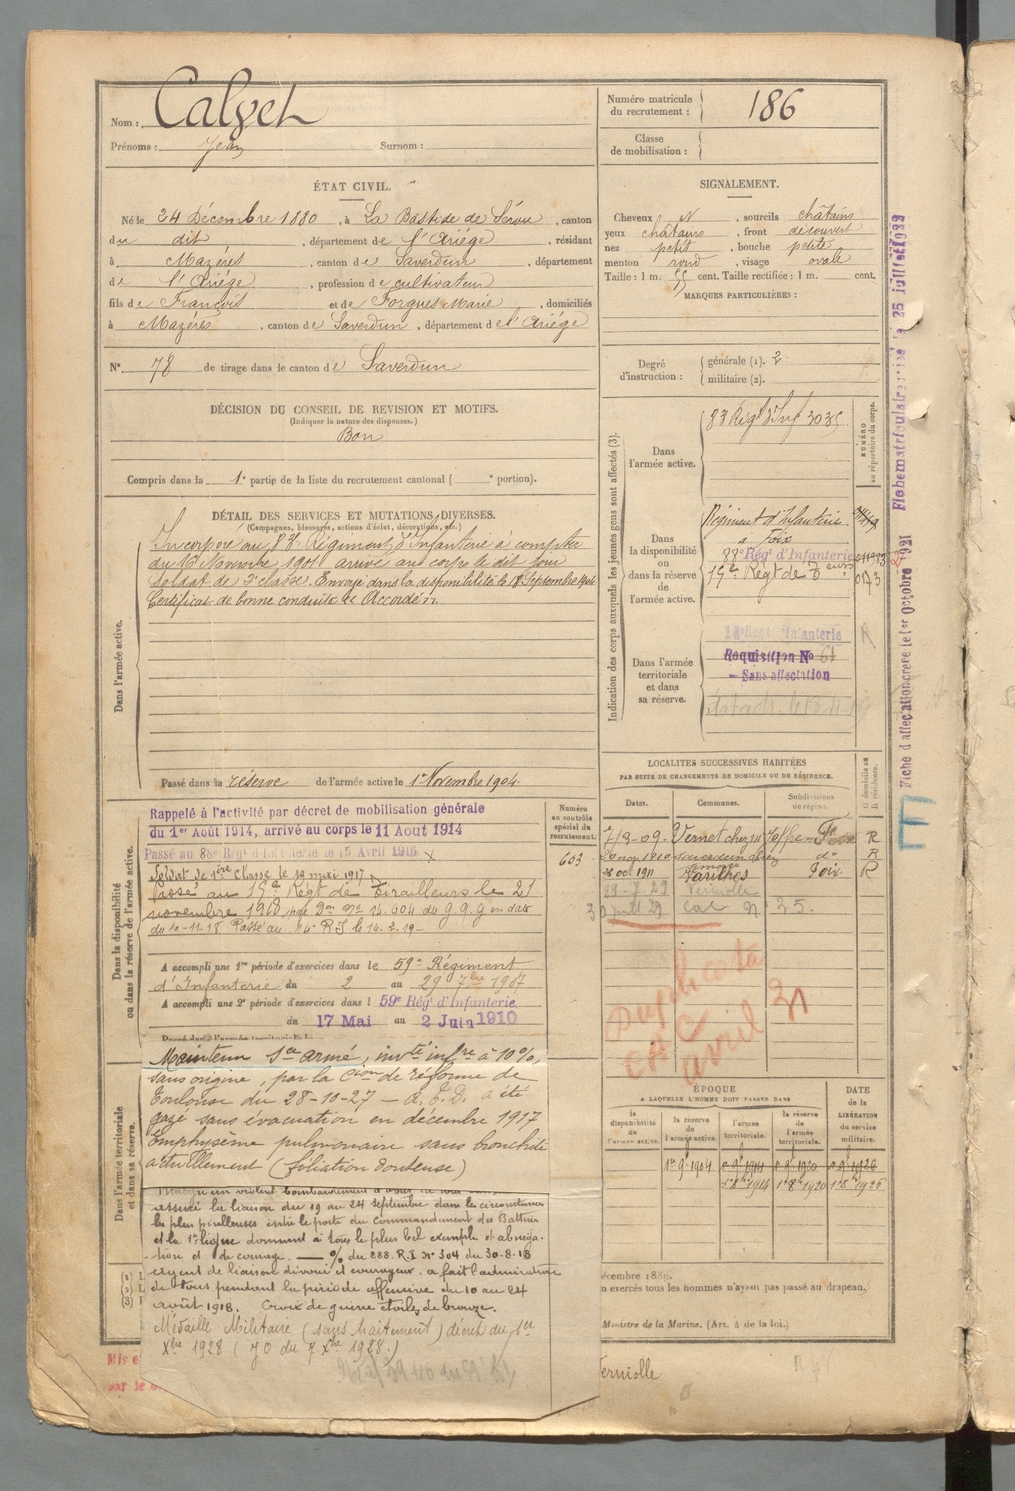 Nom : Calvet
Prénoms : Jean Surnom :
Numéro matricule du recrutement : 186
Classe de mobilisation :
ÉTAT CIVIL.
Né le 24 Décembre 1880, à La Bastide de Sérou, canton
du dit, département de l'Ariège, résidant
à Mazères, canton de Saverdun, département
de l'Ariège, profession de cultivateur
fils de François et de Forgues Marie, domiciliés
à Mazères, canton de Saverdun, département de l'Ariège
N° 78 de tirage dans le canton de Saverdun
DÉCISION DU CONSEIL DE REVISION ET MOTIFS.
(Indiquer la nature des dispenses.)
Bon
Compris dans la 1e partie de la liste du recrutement cantonal ( e portion).
SIGNALEMENT.
Cheveux N, sourcils châtains
yeux châtains, front découvert
nez petit, bouche petite
menton rond, visage ovale
Taille : 1 m. 55 cent. Taille rectifiée : 1 m. cent.
MARQUES PARTICULIÈRES :
Degré d'instruction : générale (1). 2
militaire (2).
DÉTAIL DES SERVICES ET MUTATIONS DIVERSES.
(Campagnes, blessures, actions d'éclat, décorations, etc.)
Dans l'armée active.
Incorporé au 83e Régiment d'Infanterie à compter
du 16 Novembre 1901 arrivé au corps le dit jour
Soldat de 2e classe. Envoyé dans la disponibilité le Septembre 1904
Certificat de bonne conduite Accordé
Passé dans la réserve de l'armée active le 1er Novembre 1904.
Indication des corps auxquels les jeunes gens sont affectés (3).
NUMÉRO au répertoire du corps.
Dans l'armée active.
83 Régt d'Inf 3035
Dans la disponibilité ou dans la réserve de l'armée active.
Régiment d'Infanterie
à Foix
88e Rég d'Infanterie
15e Régt de Teurs
Dans l'armée territoriale et dans sa réserve.
14e Régt Infanterie
Requisition No
Sans affectation
Fiche matriculaire
25 juillet 1922
Fiche d'affectation créée le 1er octobre 1921
Dans la disponibilité ou dans la réserve de l'armée active.
Rappelé à l'activité par décret de mobilisation générale
du 1er Août 1914, arrivé au corps le 11 Aout 1914
Passé au 88e Rég d'Infanterie le 15 Avril 1916
Soldat de 1ère classe le 12 mai 1917
Passé au 15e Régt de Tirailleurs le 21
novembre 1918 14.604 du G.Q.G en date
du 10-11-18 Passé au 14e R.I le 14-2-19
A accompli une 1re période d'exercices dans le 59e Régiment
d'Infanterie du 2 au 29 7bre 1907
A accompli une 2e période d'exercices dans l 59e Rég d'Infanterie
du 17 Mai au 2 Juin 1910
Numéro au contrôle spécial du recrutement.
603
LOCALITÉS SUCCESSIVES HABITÉES
PAR SUITE DE CHANGEMENTS DE DOMICILE OU DE RÉSIDENCE.
D domicile ou R résidence.
Dates. Communes. Subdivisions de région.
7-3-09 Vernet chez Foix R
20 nov. 1910 do R
26 oct 1911 Varilhes Foix R
29-7-29 Verniolle
Duplicata
avril 31
Dans l'armée territoriale et dans sa réserve.
Maintenu Sce armé, invté infre à 10%,
sans origine, par la Cion de réforme de
Toulouse du 28-10-27 – a été
gazé sans évacuation en décembre 1917
Emphysème pulmonaire sans bronchite
actuellement (filiation douteuse)
assuré la liaison du 19 au 24 septembre dans les circonstances
les plus périlleuses entre le poste du Commandement des Battns
et la 1e ligne donnant à tous le plus bel exemple d'abnéga-
tion et de courage. — % du 288. R.I N° 304 du 30-8-18
agent de liaison dévoué et courageux. a fait l'admiration
de tous pendant la période offensive du 10 au 24
août 1918. Croix de guerre étoile de bronze.
Médaille Militaire (sans traitement) décret du 1er
Xbre 1928 (JO du 7 Xbre 1928.)
ÉPOQUE
A LAQUELLE L'HOMME DOIT PASSER DANS
la disponibilité de l'armée active.
la réserve de l'armée active.
l'armée territoriale.
la réserve de l'armée territoriale.
DATE de la LIBÉRATION du service militaire.
1er 9bre 1904
1er 8bre 1914 1er 8bre 1920 1er 8bre 1926
décembre 1889.
en exercés tous les hommes n'ayant pas passé au drapeau.
Ministre de la Marine. (Art. 4 de la loi.)
Verniolle